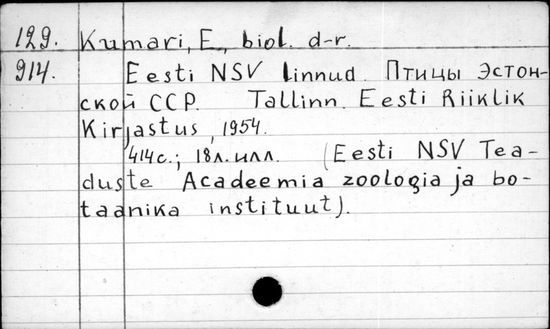 129. Kumari, E., biol. d-r.
914. Eesti NSV linnud. Птицы Эстон-
ской ССР. Tallinn. Eesti Riiklik
Kirjastus, 1954.
414 с.; 18 л. илл. (Eesti NSV Tea-
duste Acadeemia zoologia ja bo-
taanika instituut).